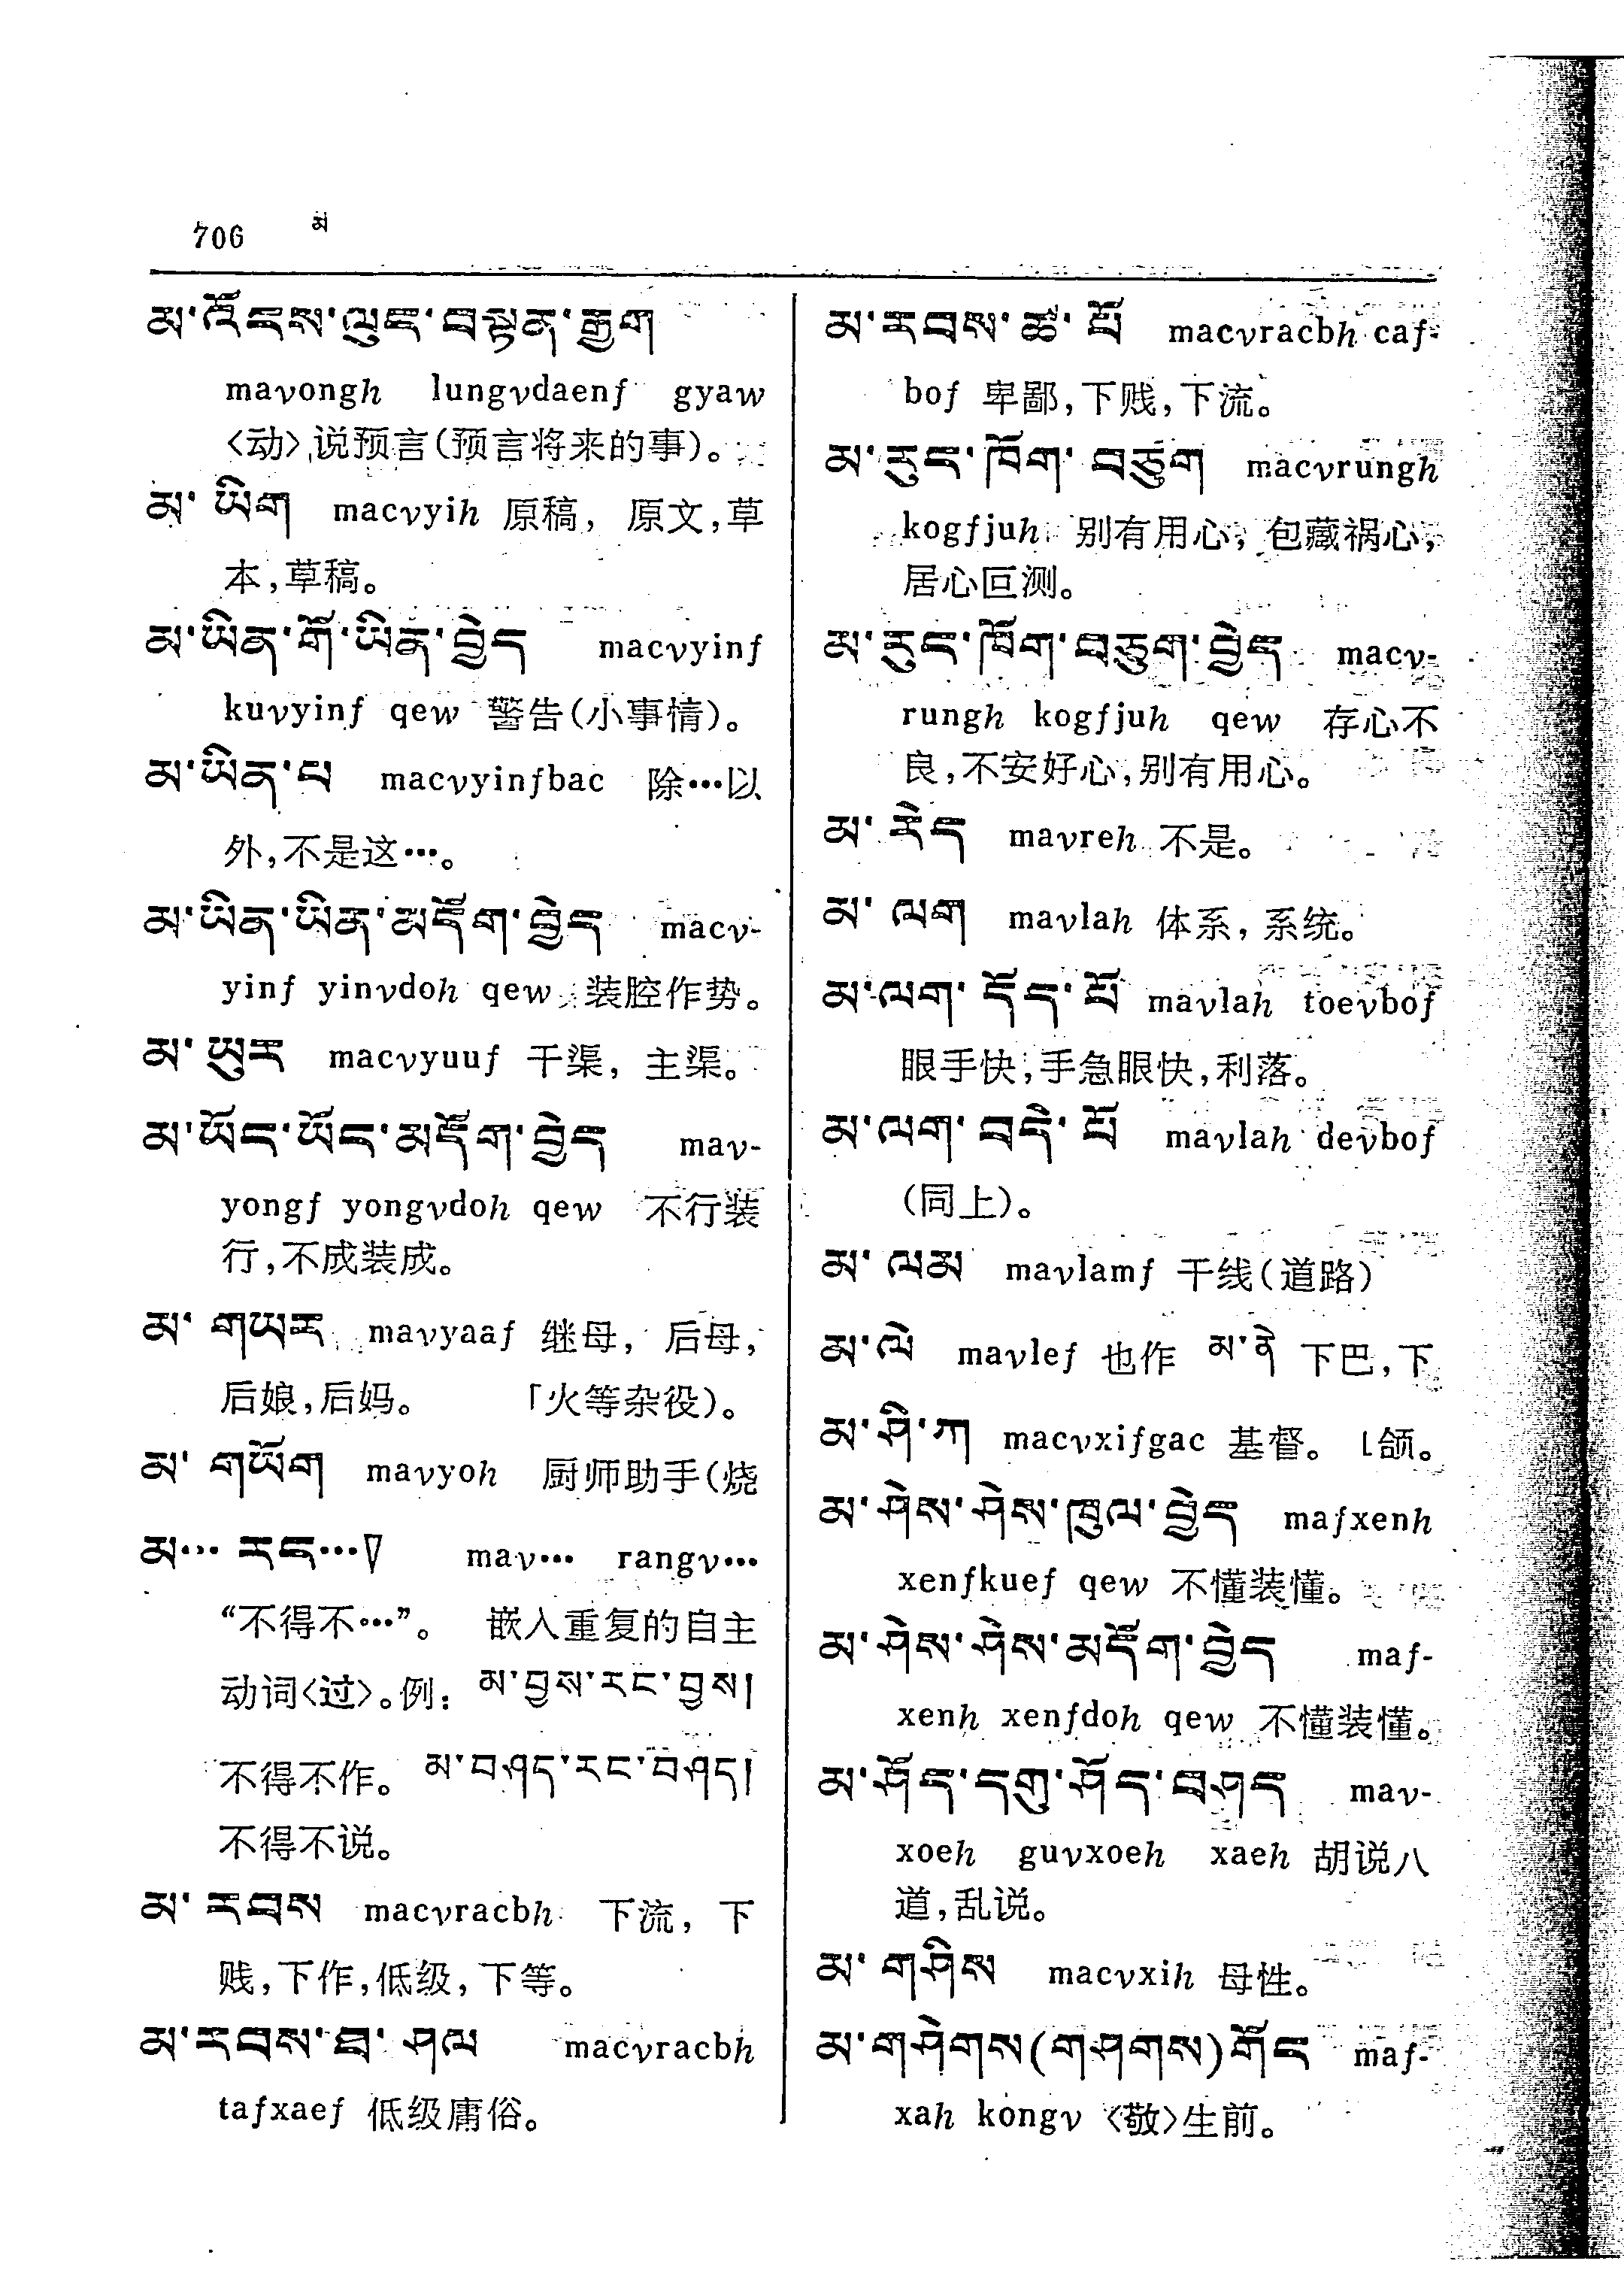 706 མ
མ་འོངས་ལུང་བསྟན་རྒྱག
mavongh lungvdaenf gyaw
〈动〉说预言(预言将来的事)。
མ་ཡིག macvyih 原稿, 原文,草
本,草稿。
མ་ཡིན་གོ་ཡིན་བྱེད macvyinf
kuvyinf qew 警告(小事情)。
མ་ཡིན་པ macvyinfbac 除…以
外,不是这…。
མ་ཡིན་ཡིན་མདོག་བྱེད macv-
yinf yinvdoh qew 装腔作势。
མ་ཡུར macvyuuf 干渠, 主渠。
མ་ཡོང་ཡོང་མདོག་བྱེད mav-
yongf yongvdoh qew 不行装
行,不成装成。
མ་གཡར mavyaaf 继母, 后母,
后娘,后妈。 「火等杂役)。
མ་གཡོག mavyoh 厨师助手(烧
མ… རང…༈ mav… rangv…
“不得不…”。 嵌入重复的自主
动词〈过〉。例: མ་བྱས་རང་བྱས།
不得不作。 མ་བཤད་རང་བཤད།
不得不说。
མ་རབས macvracbh 下流, 下
贱,下作,低级,下等。
མ་རབས་ཐ་ཤལ macvracbh
tafxaef 低级庸俗。
མ་རབས་ཚ་པོ macvracbh caf-
bof 卑鄙,下贱,下流。
མ་རུང་ཁོག་བཅུག macvrungh
kogfjuh 别有用心, 包藏祸心,
居心叵测。
མ་རུང་ཁོག་བཅུག་བྱེད macv-
rungh kogfjuh qew 存心不
良,不安好心,别有用心。
མ་རེད mavreh 不是。
མ་ལག mavlah 体系, 系统。
མ་ལག་དོད་པོ mavlah toevbof
眼手快,手急眼快,利落。
མ་ལག་བདེ་པོ mavlah devbof
(同上)。
མ་ལམ mavlamf 干线(道路)
མ་ལེ mavlef 也作 མ་ནེ 下巴,下
མ་ཤི་ཀ macvxifgac 基督。 ⌊颌。
མ་ཤེས་ཤེས་ཁུལ་བྱེད mafxenh
xenfkuef qew 不懂装懂。
མ་ཤེས་ཤེས་མདོག་བྱེད maf-
xenh xenfdoh qew 不懂装懂。
མ་ཤོད་དགུ་ཤོད་བཤད mav-
xoeh guvxoeh xaeh 胡说八
道,乱说。
མ་གཤིས macvxih 母性。
མ་གཤེགས(གཤགས)གོང maf-
xah kongv 〈敬〉生前。